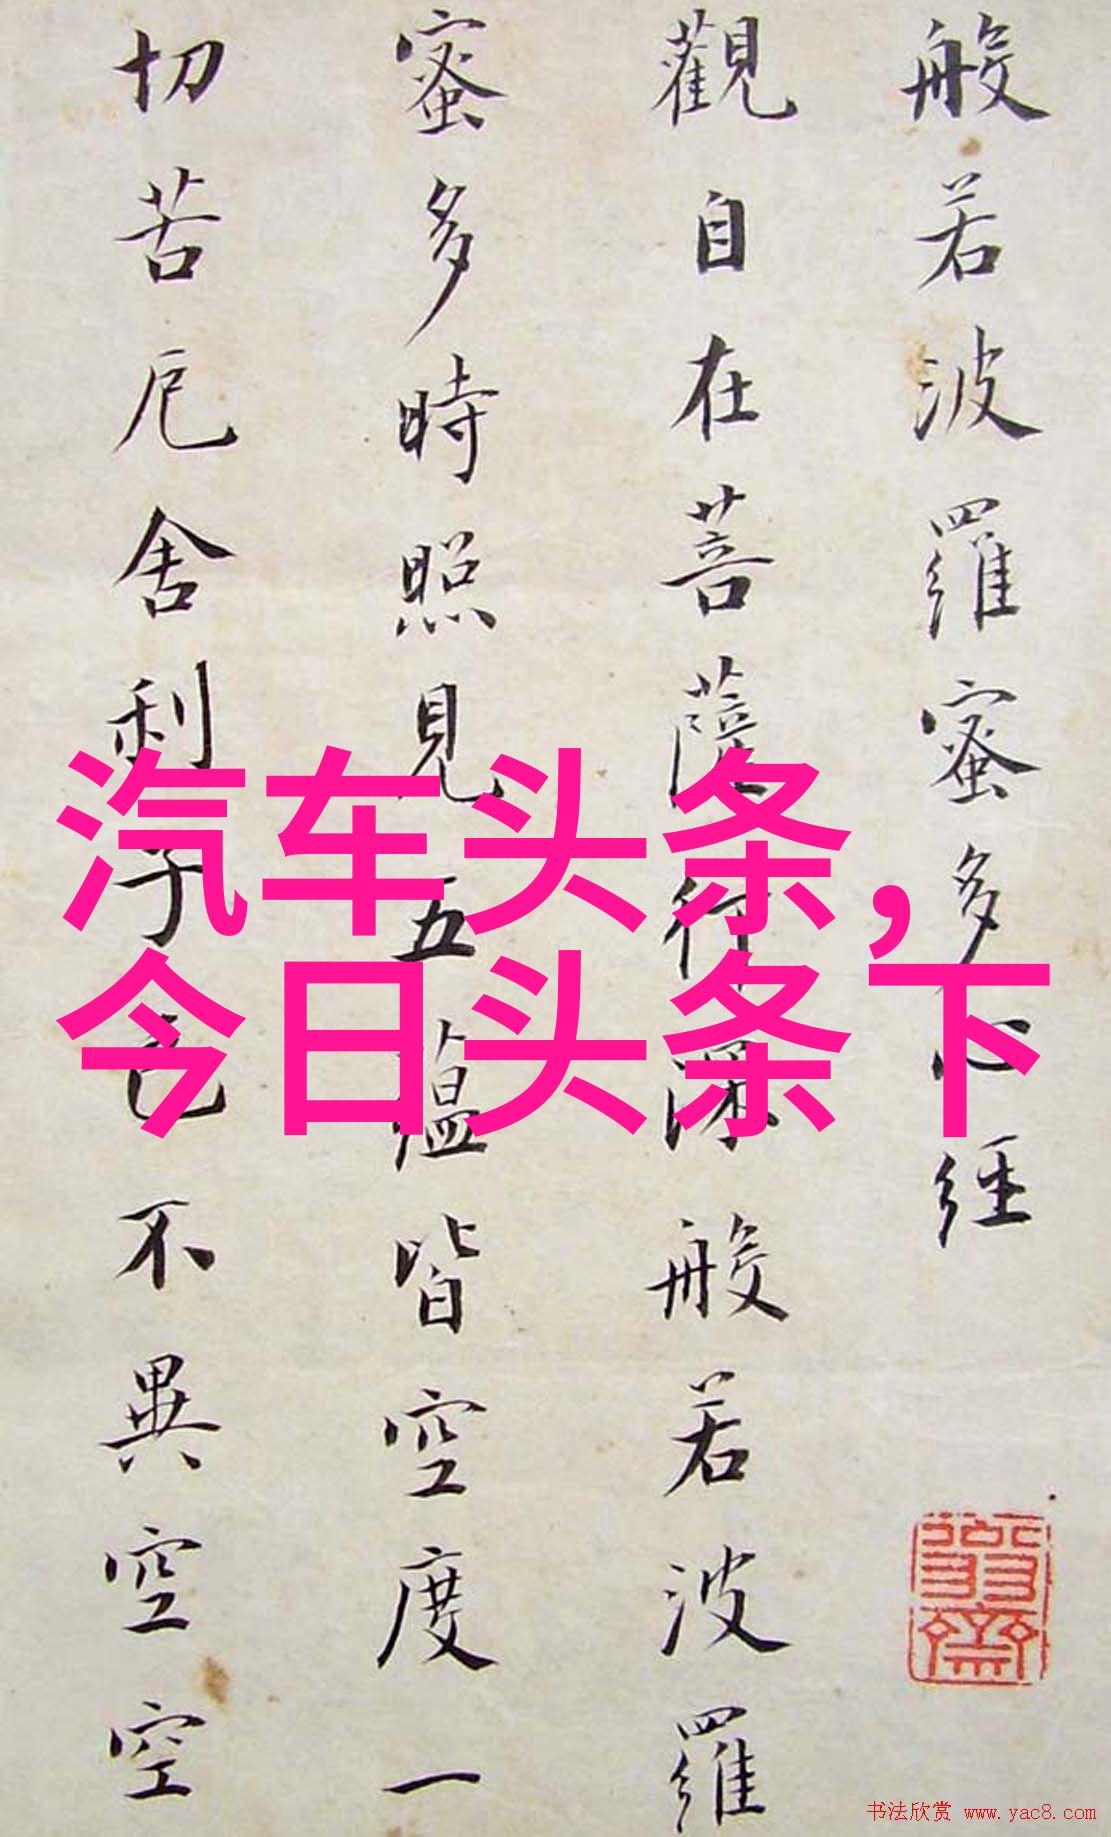 般若波羅蜜多心経
觀自在菩薩行深般若波羅
蜜多時照見五蘊皆空度一
切苦厄舍利子色不異空空
汽车头条，
今日头条下
书法欣赏 www.yac8.com